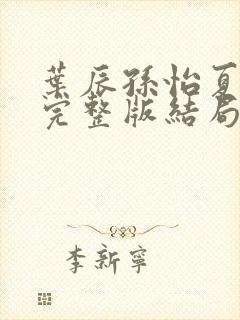 葉辰孫怡夏
完整版結局
李新寧